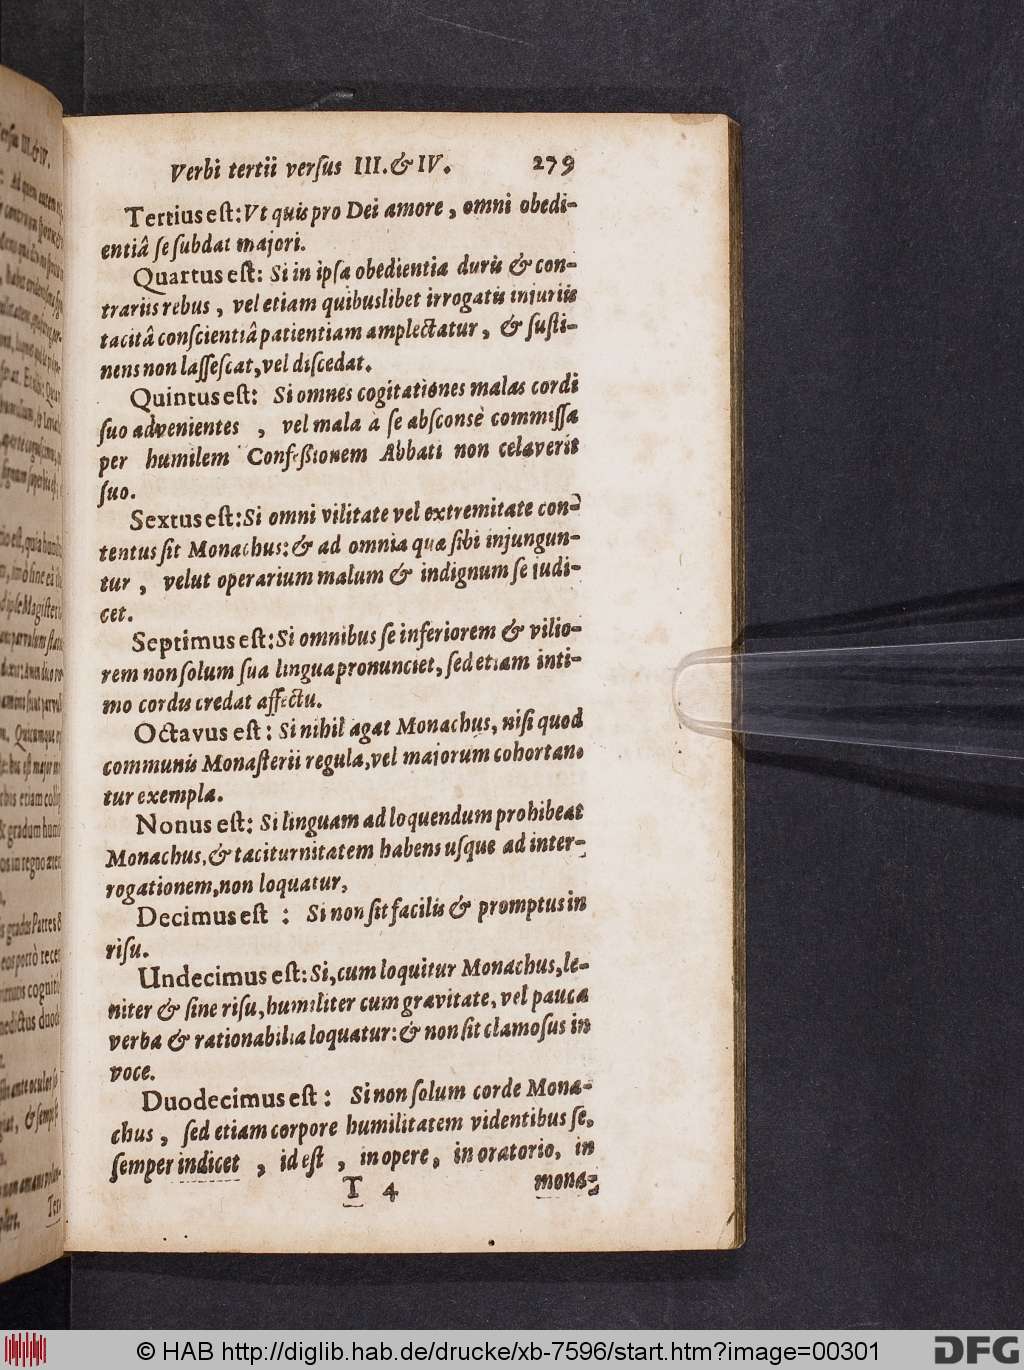 Verbi tertii verſus III. & IV. 279
Tertius eſt: Ut quis pro Dei amore, omni obedi-
entiâ ſe ſubdat majori.
Quartus eſt: Si in ipſa obedientia duris & con-
trariis rebus, vel etiam quibuslibet irrogatis injuriis
tacitâ conſcientiâ patientiam amplectatur, & ſuſti-
nens non laſſeſcat, vel diſcedat.
Quintus eſt: Si omnes cogitationes malas cordi
ſuo advenientes, vel mala à ſe abſconsè commiſſa
per humilem Confeßionem Abbati non celaverit
ſuo.
Sextus eſt: Si omni vilitate vel extremitate con-
tentus ſit Monachus: & ad omnia quæ ſibi injungun-
tur, velut operarium malum & indignum ſe judi-
cet.
Septimus eſt: Si omnibus ſe inferiorem & vilio-
rem non ſolum ſua lingua pronunciet, ſed etiam inti-
mo cordis credat affectu.
Octavus eſt: Si nihil agat Monachus, niſi quod
communis Monaſterii regula, vel majorum cohortan-
tur exempla.
Nonus eſt: Si linguam ad loquendum prohibeat
Monachus, & taciturnitatem habens uſque ad inter-
rogationem, non loquatur,
Decimus eſt: Si non ſit facilis & promptus in
riſu.
Undecimus eſt: Si, cum loquitur Monachus, le-
niter & ſine riſu, humiliter cum gravitate, vel pauca
verba & rationabilia loquatur: & non ſit clamoſus in
voce.
Duodecimus eſt: Si non ſolum corde Mona-
chus, ſed etiam corpore humilitatem videntibus ſe,
ſemper indicet, id eſt, in opere, in oratorio, in
T 4 mona-
© HAB http://diglib.hab.de/drucke/xb-7596/start.htm?image=00301
DFG